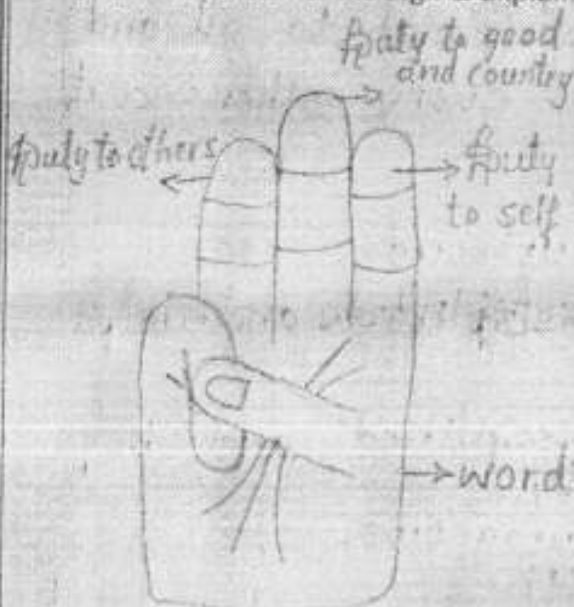 Duty to good
and country
Duty to others
Duty
to self
word